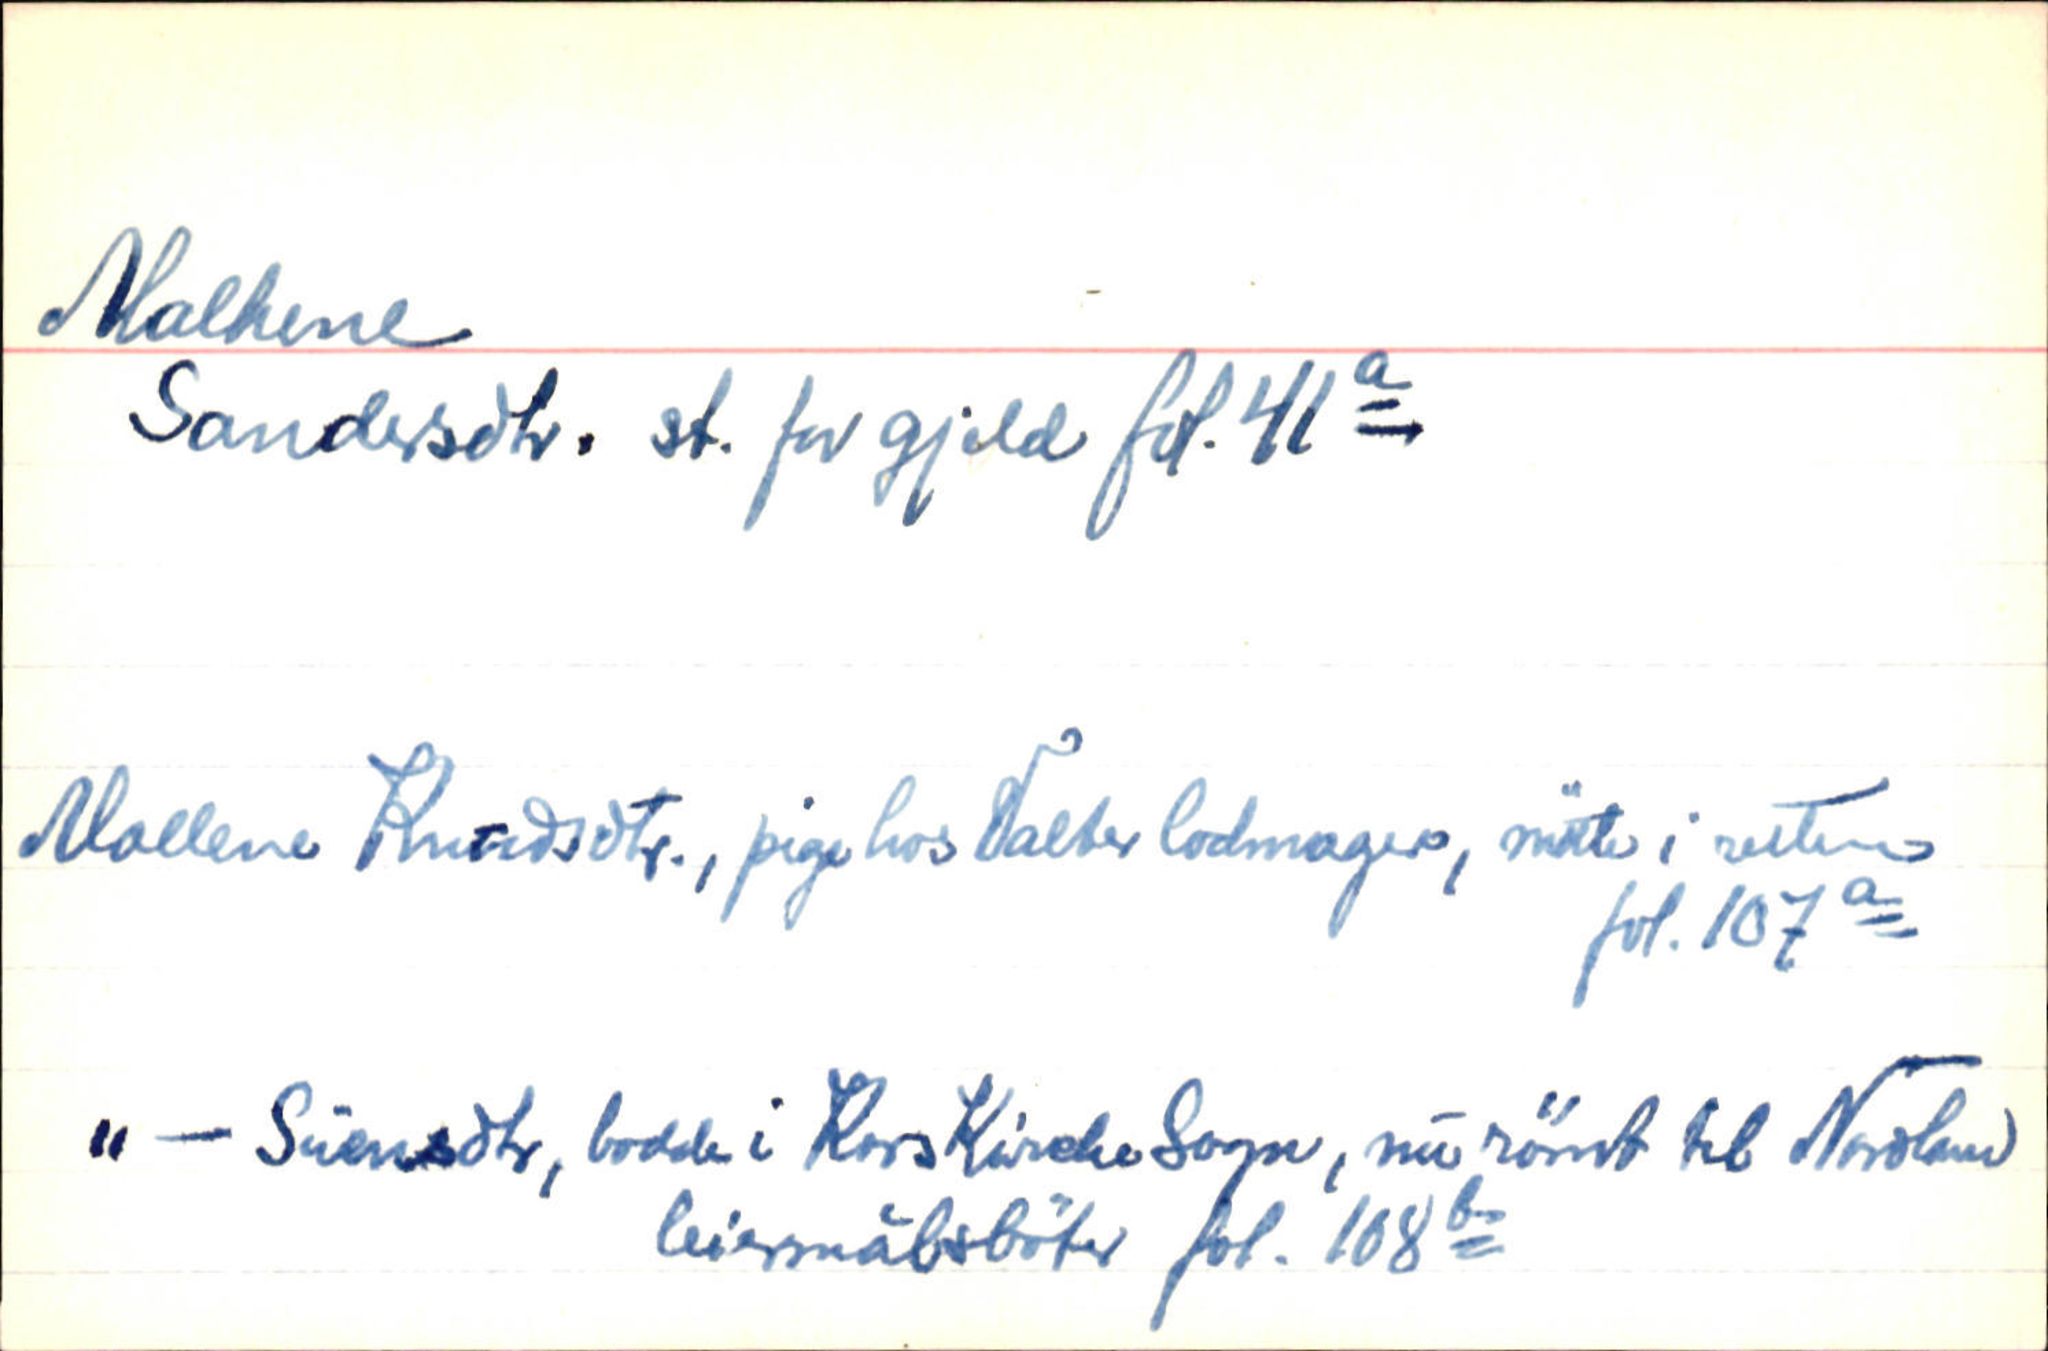 Malhene
Sandersdtr. st. for gjeld fol. 41a
Mallene Knudsdtr., pige hos Valter lodmager, möte i retten
fol. 107a
" — Süensdtr, bodde i Kors Kirche Sogn, nu römt til Nordland
leiermålsböter fol. 108b